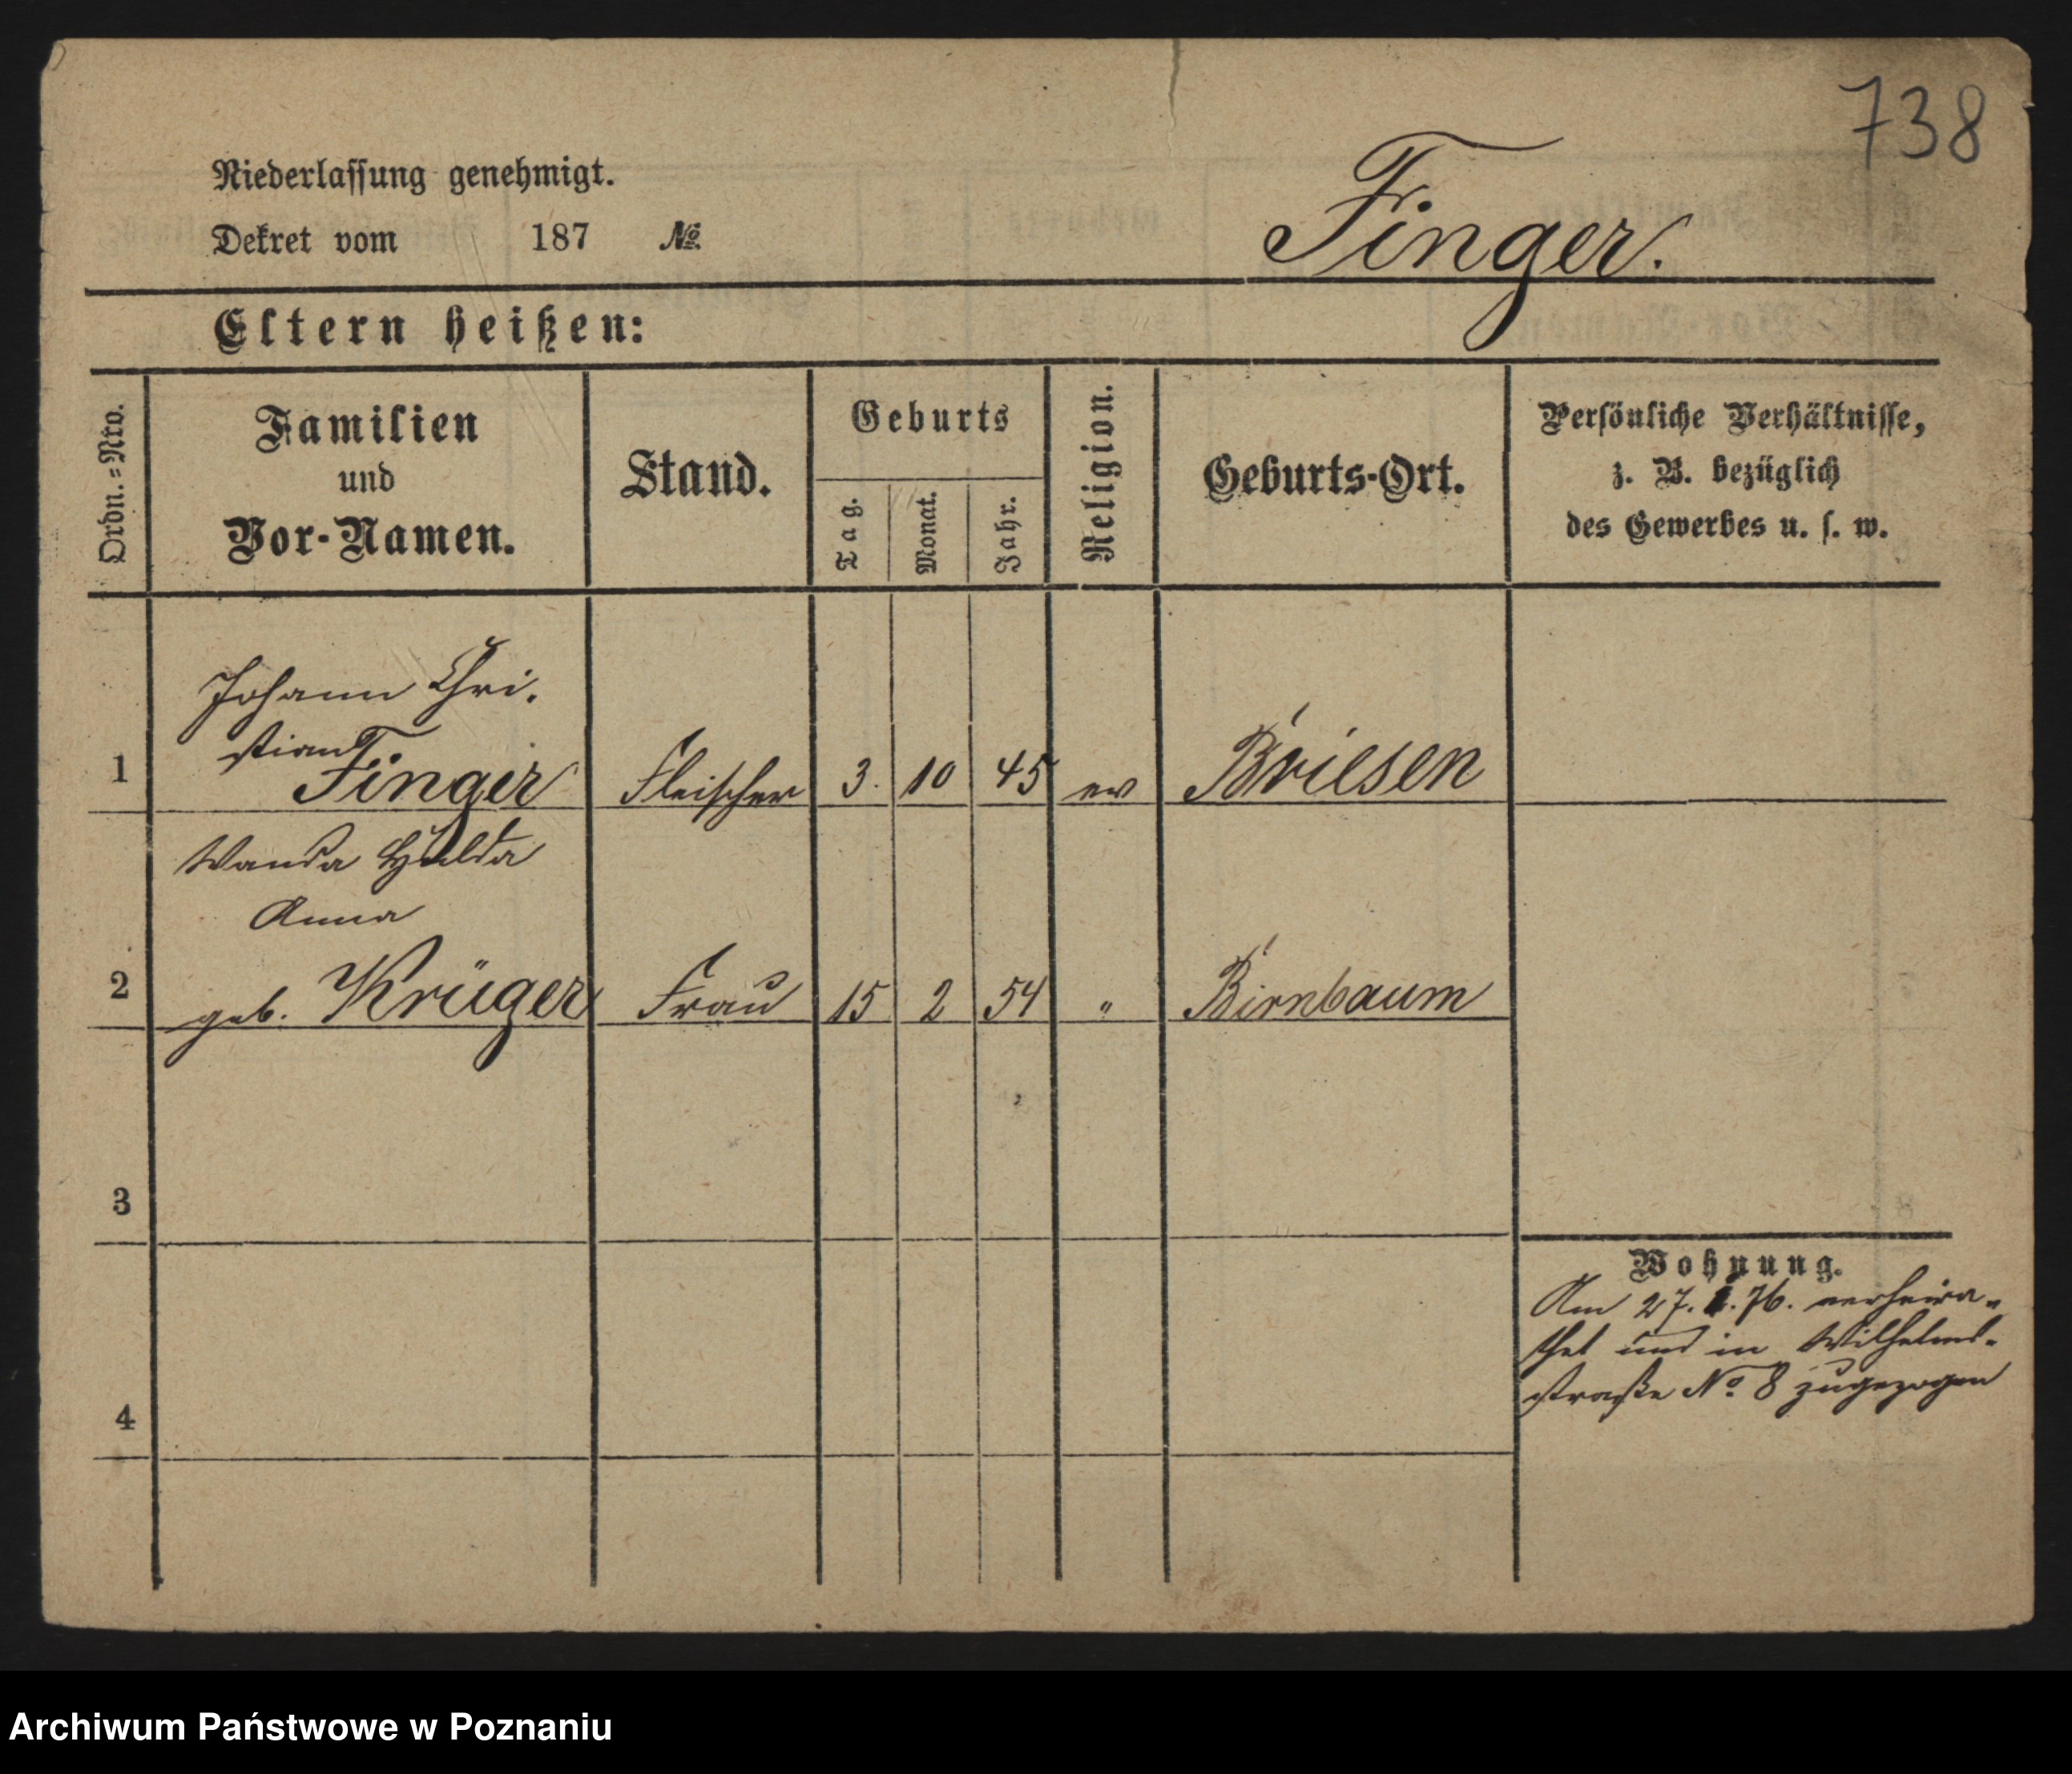 738
Niederlassung genehmigt.
Dekret vom 187 №
Finger.
Eltern heißen:
Ordn.=Nro.
Familien
und
Vor-Namen.
Stand.
Geburts
Tag.
Monat.
Jahr.
Religion.
Geburts-Ort.
Persönliche Verhältnisse,
z. B. bezüglich
des Gewerbes u. s. w.
Johann Chri-
stian
1 Finger Fleischer 3. 10 45 ev Briesen
Wanda Hulda
Anna
2 geb. Krüger Frau 15 2 54 " Birnbaum
3
Wohnung.
Am 27. 1. 76. verheira-
thet und in Wilhelms-
straße No 8 zugezogen
4
Archiwum Państwowe w Poznaniu